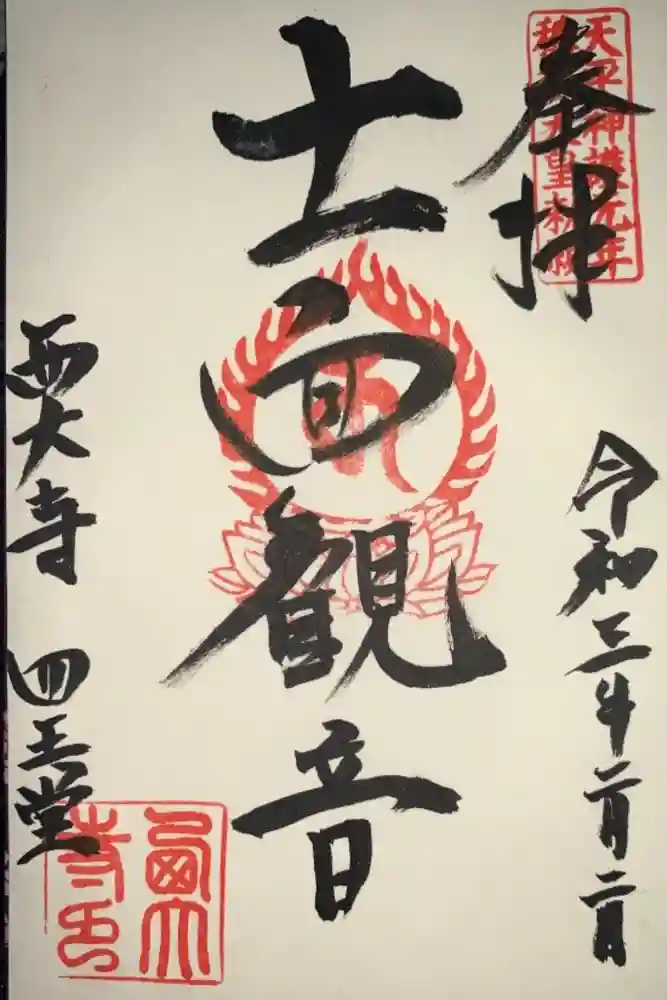 奉拝
天平神護元年
天皇勅願
令和三年二月二日
十一面観音
西大寺 四王堂
西大
寺印